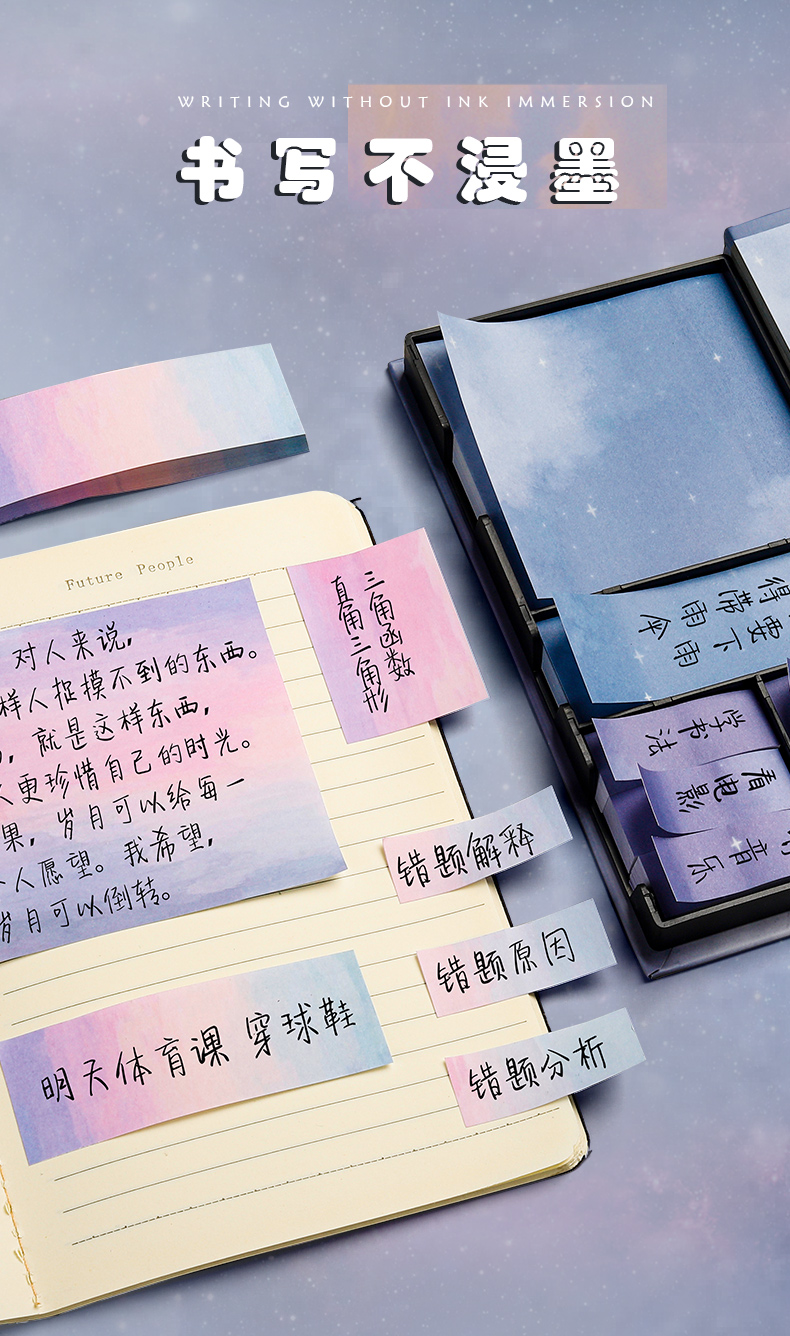 WRITING WITHOUT INK IMMERSION
书写不浸墨
Future People
对人来说，
样人捉摸不到的东西。
，就是这样东西，
更珍惜自己的时光。
果，岁月可以给每一
人愿望。我希望，
岁月可以倒转。
三角函数
直角三角形
错题解释
错题原因
错题分析
明天体育课 穿球鞋
要下雨
得带雨伞
学书法
看电影
音乐